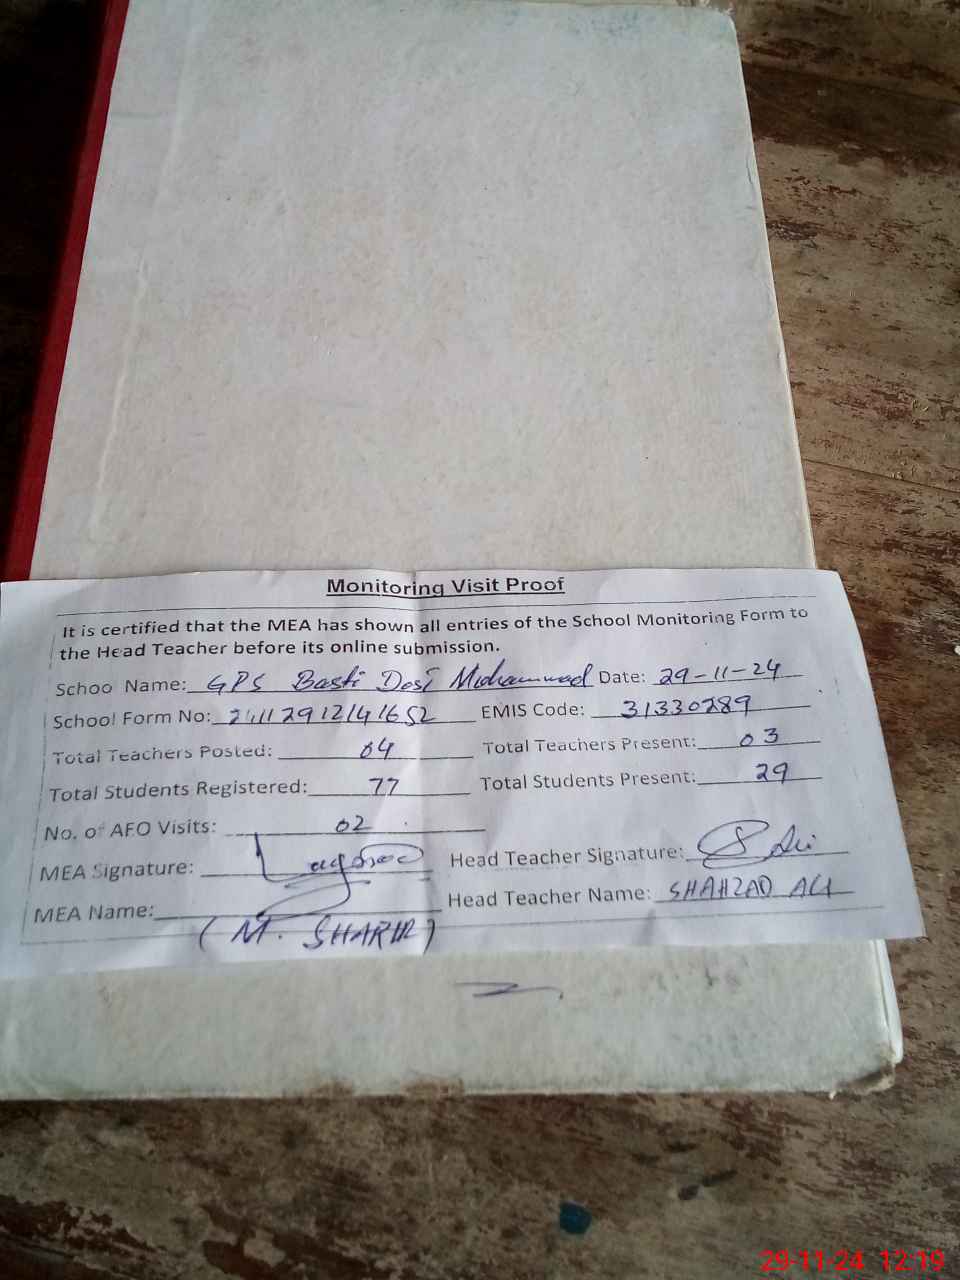 Monitoring Visit Proof
It is certified that the MEA has shown all entries of the School Monitoring Form to
the Head Teacher before its online submission.
School Name: GPS Basti Dosi Mohammad Date: 29-11-24
School Form No: 24112912141652 EMIS Code: 31330289
Total Teachers Posted: 04 Total Teachers Present: 03
Total Students Registered: 77 Total Students Present: 29
No. of AFO Visits: 02
MEA Signature: Head Teacher Signature:
MEA Name: Head Teacher Name: SHAHZAD ALI
(M. SHARIF)
29-11-24 12:19